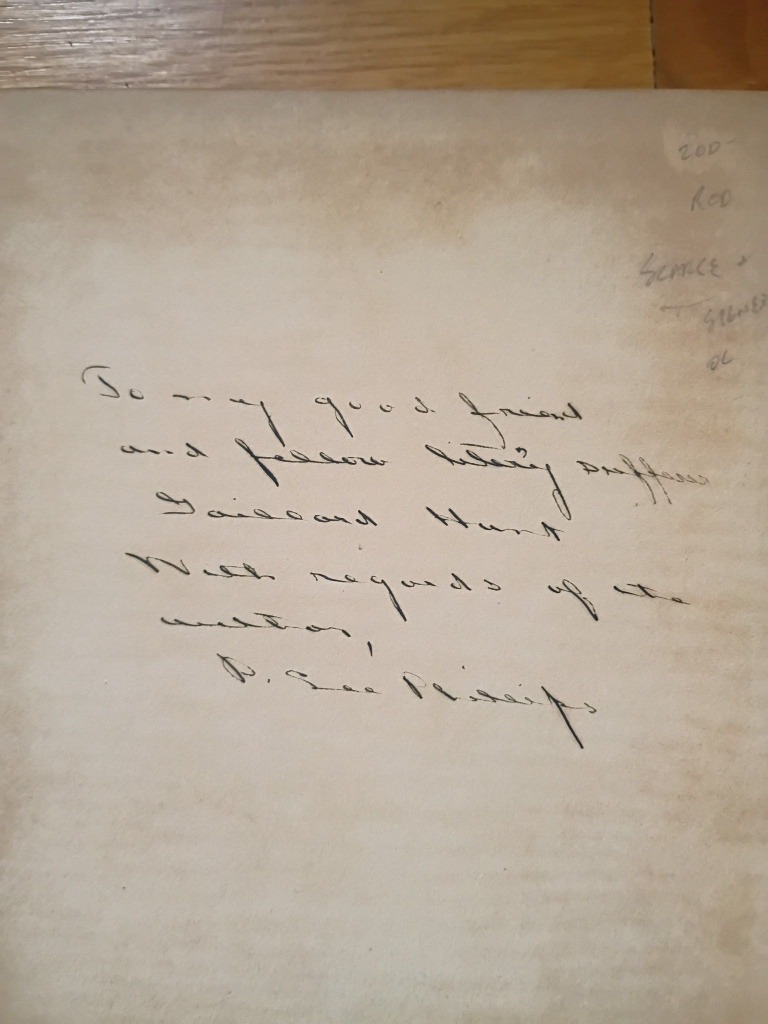 200-
ROD
SCARCE +
SIGNED
OL
To my good friend
and fellow library sufferer
Gaillard Hunt
With regards of the
author,
P. Lee Phillips